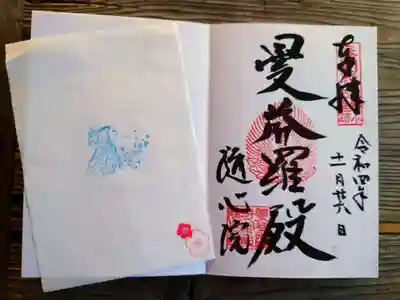 奉拝
令和四年
十一月廿六日
曼荼羅殿
随心院